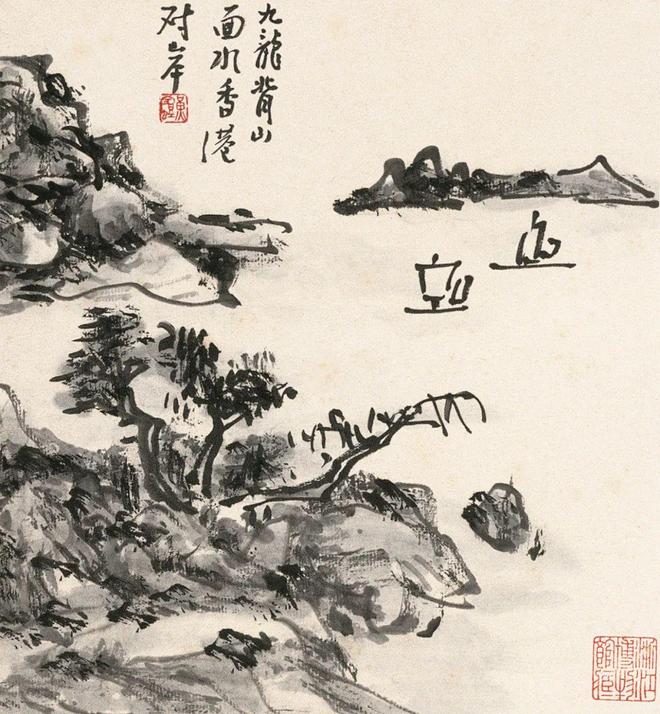 九龍背山
面水香港
对岸
浙江
博物
館